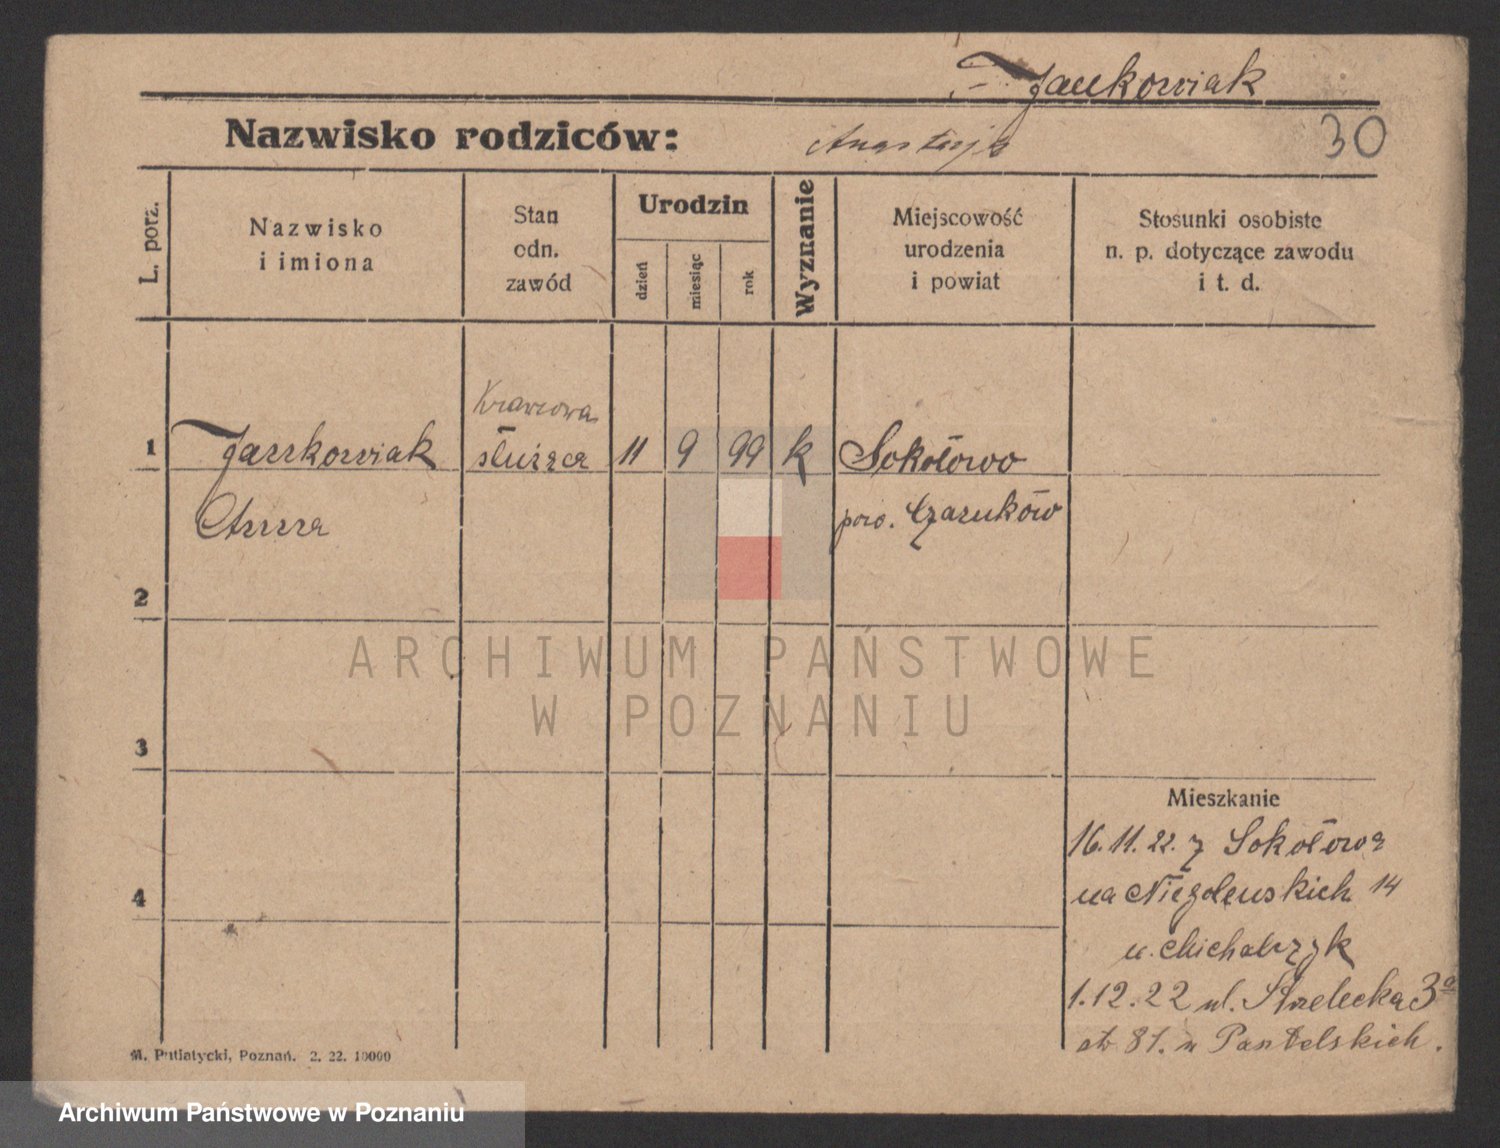 Jankowiak
Nazwisko rodziców:
Anastazja
30
L. porz.
Nazwisko
i imiona
Stan
odn.
zawód
Urodzin
dzień
miesiąc
rok
Wyznanie
Miejscowość
urodzenia
i powiat
Stosunki osobiste
n. p. dotyczące zawodu
i t. d.
Krawcowa
1 Jankowiak służąca 11 9 99 k Sokołowo
Anna pow. Czarnków
2
3
4
Mieszkanie
16.11.22. z Sokołowa
na Niegolewskich 14
u. Michalczyk
1.12.22 ul. Strzelecka 3a
81. u Pantelskich.
M. Putiatycki, Poznań. 2. 22. 10000
ARCHIWUM PAŃSTWOWE
W POZNANIU
Archiwum Państwowe w Poznaniu